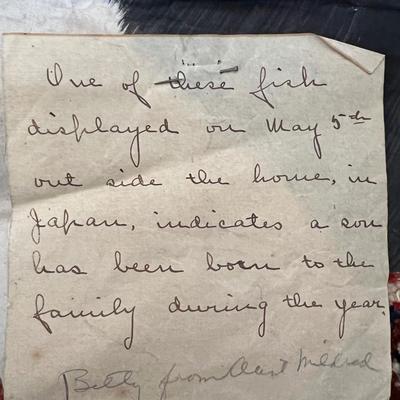 One of these fish
displayed on May 5th
out side the home, in
Japan, indicates a son
has been born to the
family during the year.
Betty from Aunt Mildred